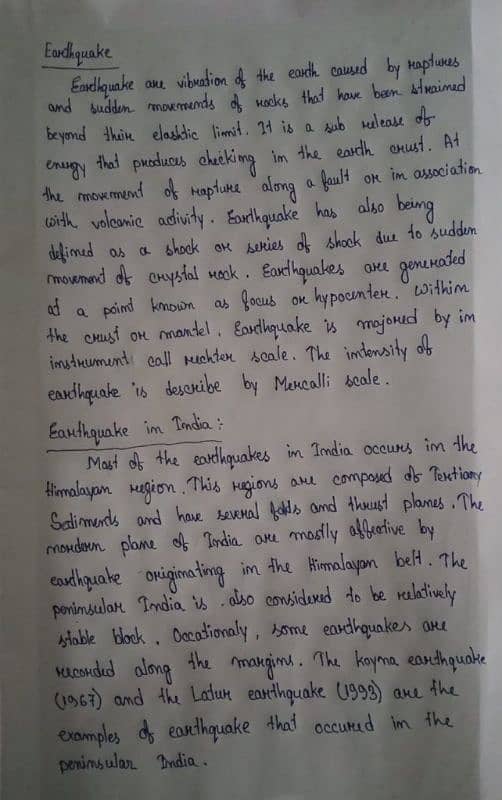 Earthquake
Earthquake are vibration of the earth caused by raptures
and sudden movements of rocks that have been strained
beyond their elashtic limit. It is a sub release of
energy that produces checking in the earth crust. At
the movement of rapture along a fault or in association
with volcanic activity. Earthquake has also being
defined as a shock or series of shock due to sudden
movement of crystal rock. Earthquakes are generated
at a point known as focus or hypocenter. Within
the crust or mantel. Earthquake is majored by in
instrument call rechter scale. The intensity of
earthquake is describe by Mercalli scale.
Earthquake in India :-
Mast of the earthquakes in India occurs in the
Himalayan region. This regions are composed of Tertiary
Sediments and have several folds and thrust planes. The
nordorn plane of India are mostly affective by
earthquake originating in the Himalayan belt. The
peninsular India is also considered to be relatively
stable block. Occationaly, some earthquakes are
recorded along the margins. The koyna earthquake
(1967) and the Latur earthquake (1993) are the
examples of earthquake that occured in the
peninsular India.